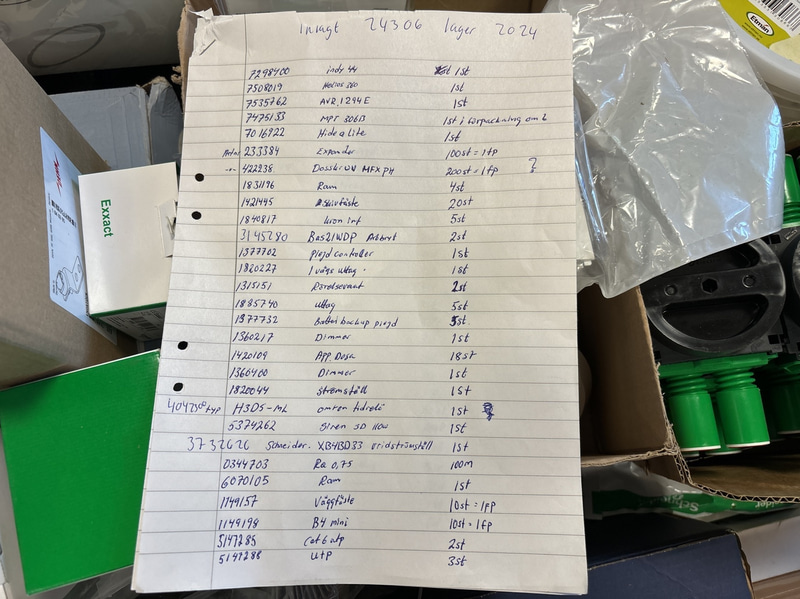 Inlagt 24306 lager 2024
7298400 indy 44 1st
7508019 Helios 360 1st
7535762 AVR 1294E 1st
7475133 MPT 306B 1st i förpackning om 6
7016922 Hide a lite 1st
233384 Expander 100st = 1fp
422238 MFX PH 200st = 1fp ?
1831196 Ram 4st
1421445 20st
1840817 kron inf 5st
3145280 Bas21WDP Arbbryt 2st
1377702 plejd controller 1st
1820227 1 vägs uttag 1st
1315151 Rörelsevakt 2st
1885740 uttag 5st
1377732 Batteri backup plejd 5st
1360217 Dimmer 1st
1420109 App. Dosa 18st
1360400 Dimmer 1st
1820044 strömställ 1st
typ H3DS-ML omron tidrelä 1st
5374262 Siren 1st
3732626 Schneider. XB4BD33 vridströmställ 1st
0344703 Rq 0,75 100m
6070105 Ram 1st
1149157 Väggfäste 10st = 1fp
1149198 B4 mini 10st = 1fp
5147288 Cat 6 utp 2st
5147288 utp 3st
Exxact
Elmän